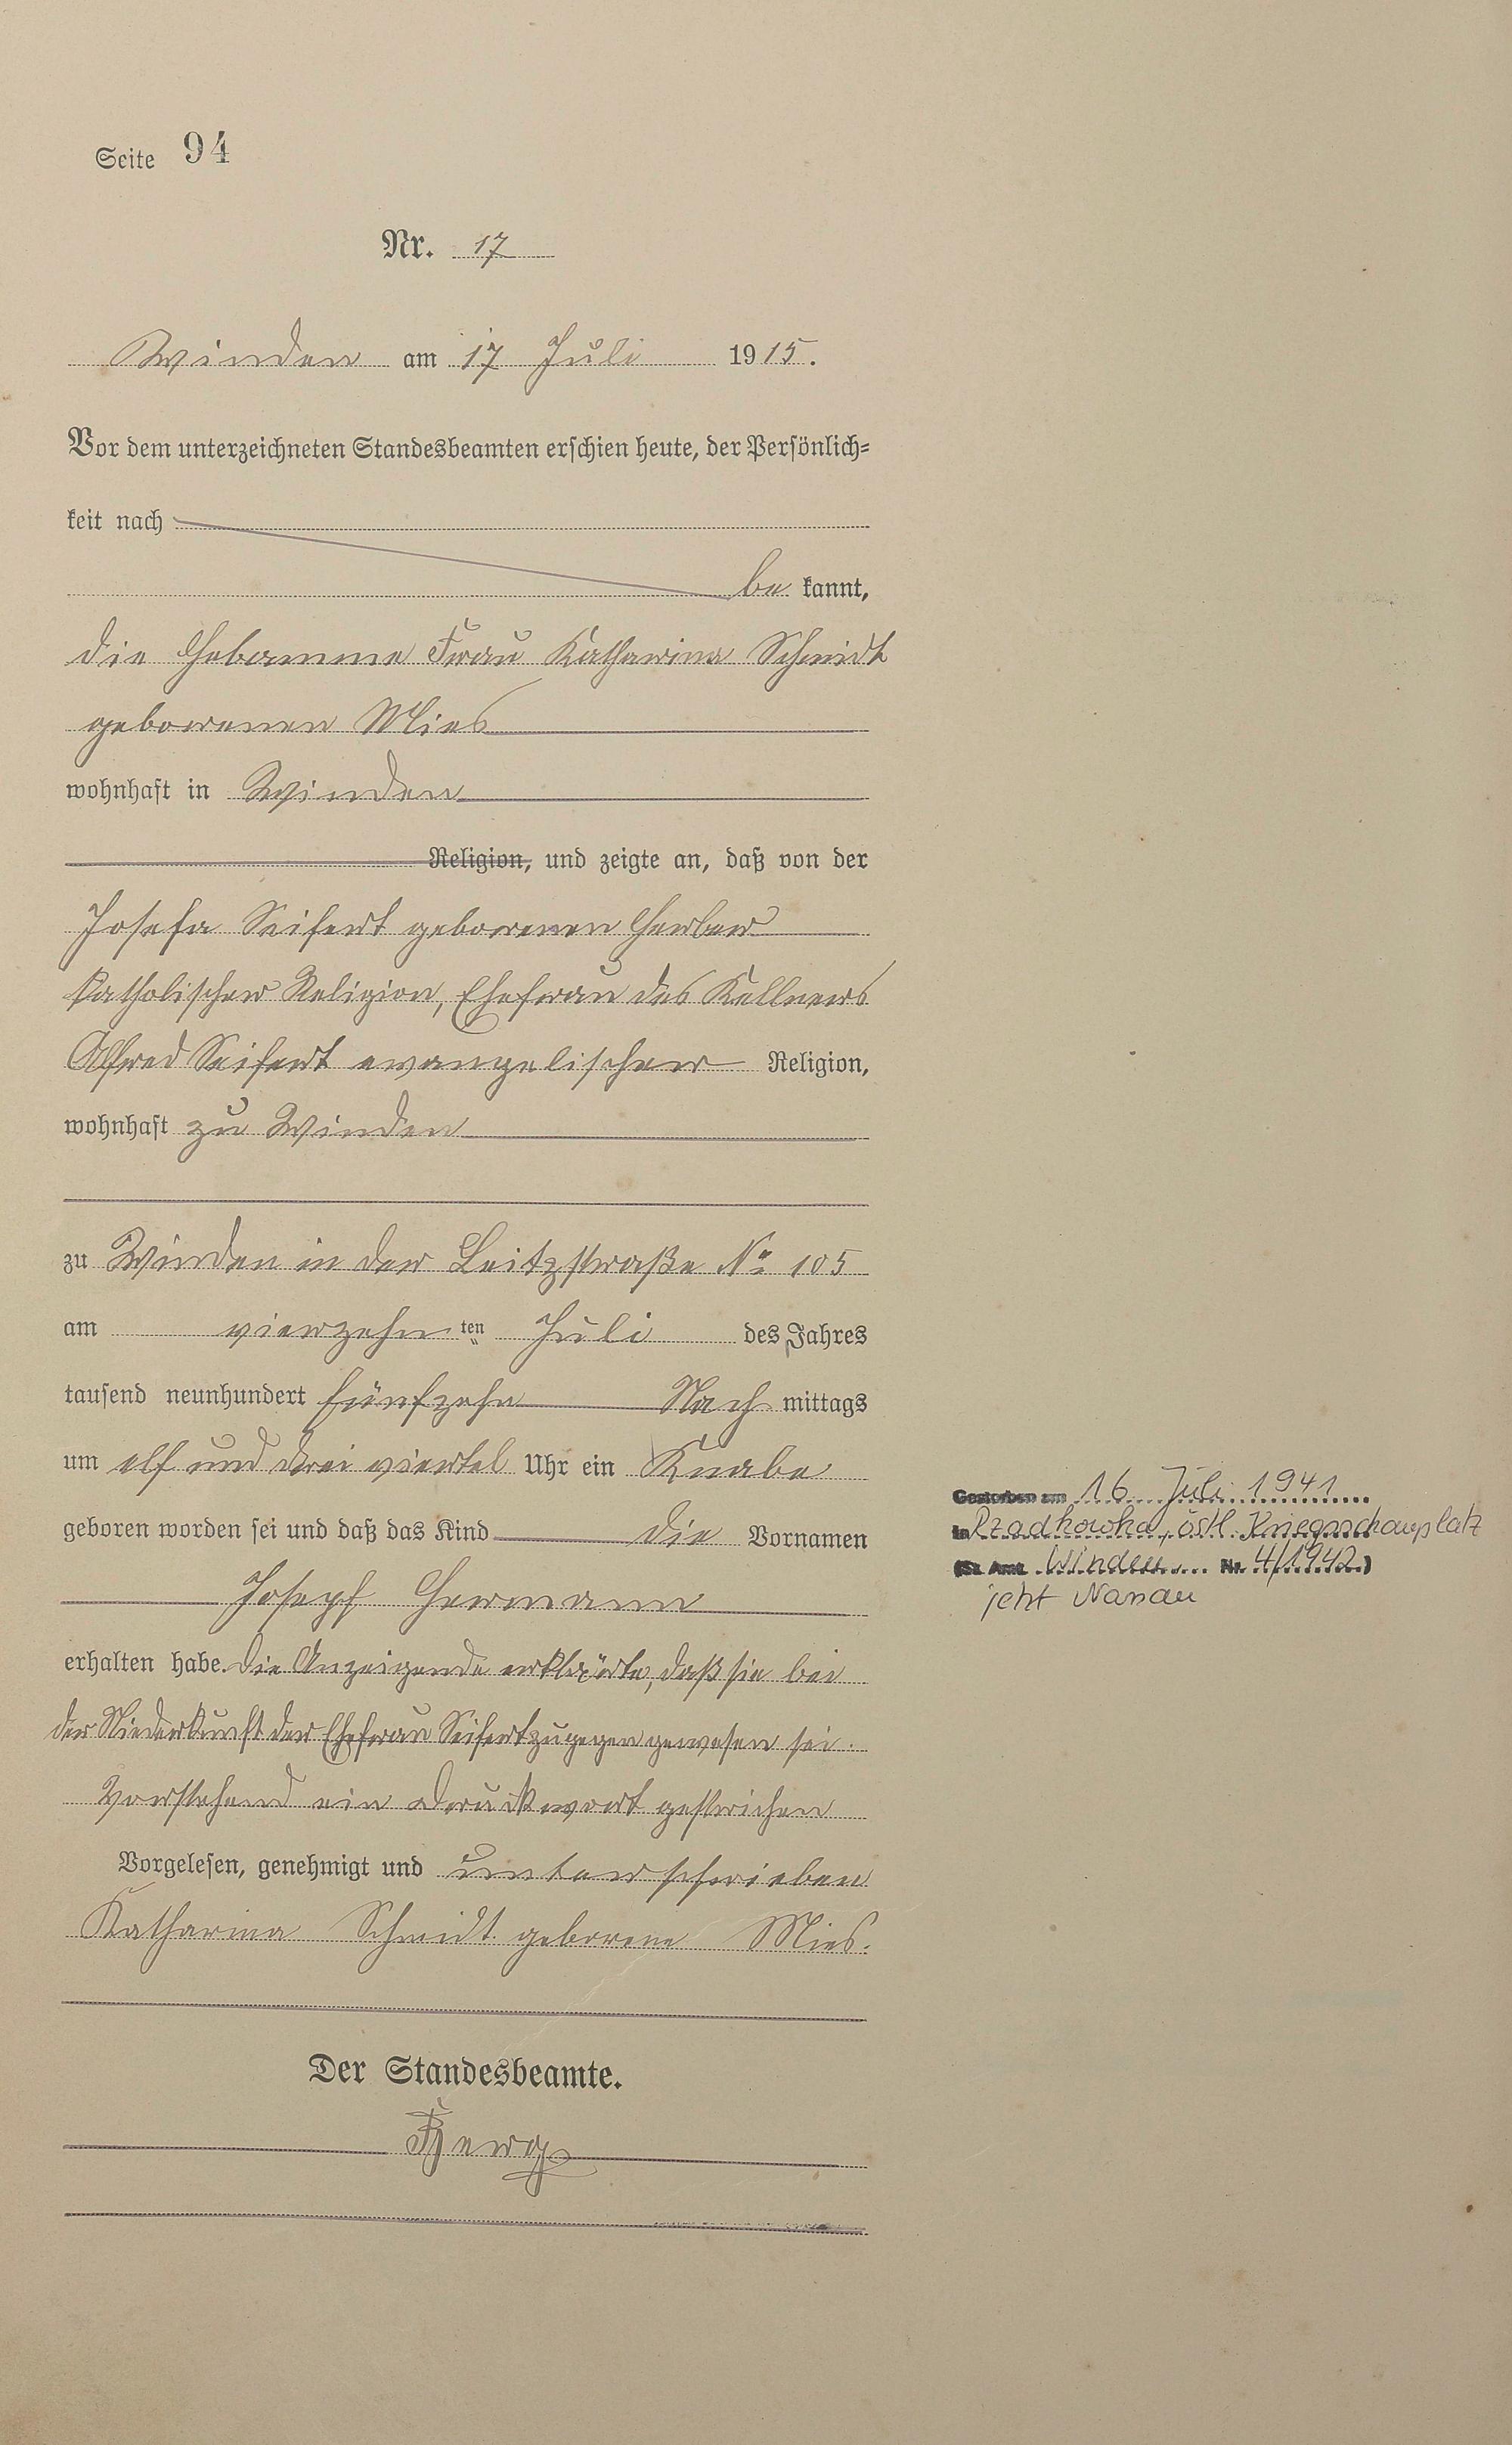 Seite 94
Nr. 17
Winden am 17 Juli 1915.
Vor dem unterzeichneten Standesbeamten erschien heute, der Persönlich=
keit nach
be kannt,
die Hebamme Frau Katharina Schmidt
geborenen Mies
wohnhaft in Winden
Religion, und zeigte an, daß von der
Josefa Seifert geborenen Herber
katholischer Religion, Ehefrau des Kellners
Alfred Seifert evangelischer Religion,
wohnhaft zu Winden
zu Winden in der Leitzstraße No 105
am vierzehn ten Juli des Jahres
tausend neunhundert fünfzehn Nach mittags
um elf und drei viertel Uhr ein Knabe
geboren worden sei und daß das Kind die Vornamen
Joseph Hermann
erhalten habe. Die Anzeigende erklärte, daß sie bei
der Niederkunft der Ehefrau Seifert zugegen gewesen sei.
Vorstehend ein Druckwort gestrichen
Vorgelesen, genehmigt und unterschrieben
Katharina Schmidt geborene Mies.
Der Standesbeamte.
Gestorben am 16. Juli 1941
in Rzadkowka, östl. Kriegsschauplatz
(St. Amt Winden Nr. 4/1942)
jetzt Nassau